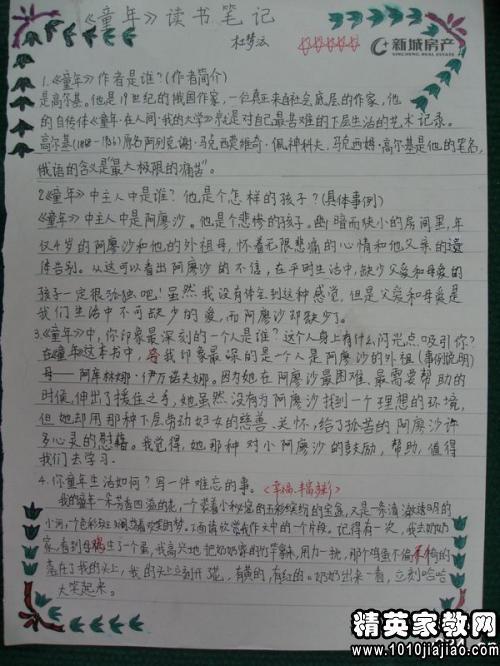 《童年》读书笔记
杜梦
新城房产
XINCHENG REAL ESTATE
1.《童年》作者是谁?(作者简介)
是高尔基。他是19世纪的俄国作家,一位真正来自社会底层的作家,他
的自传体《童年·在人间·我的大学》就是对自己最苦难的下层生活的艺术记录。
高尔基(1868-1936)原名阿列克谢·马克西莫维奇·佩神科夫,马克西姆·高尔基是他的笔名,
俄语的含义是"最大极限的痛苦"。
2.《童年》中主人中是谁?他是个怎样的孩子?(具体事例)
《童年》中主人中是阿廖沙。他是个悲惨的孩子。幽暗而狭小的房间里,年
仅4岁的阿廖沙和他的外祖母,怀着无限悲痛的心情和他父亲的遗
体告别。从这可以看出阿廖沙的不信,在平时生活中,缺少父爱和母爱的
孩子一定很孤独吧!虽然我没有体会到这种感觉,但是父爱和母爱是
我们生活中不可缺少的爱,而阿廖沙却缺少了。
3.《童年》中,你印象最深刻的一个人是谁?这个人身上有什么闪光点吸引你?
在《童年》这本书中,令我印象最深的是一个人是阿廖沙的外祖(事例说明)
母——阿库林娜·伊万诺夫娜。因为她在阿廖沙最困难、最需要帮助的
时候,伸出了援住之手,她虽然没有为阿廖沙找到一个理想的环境,
但她却用那种下层劳动妇女的慈善、关怀,给了孤苦的阿廖沙许
多心灵的慰藉。我觉得,她那种对小阿廖沙的鼓励,帮助,值得
我们去学习.
4.你童年生活如何?写一件难忘的事。(幸福、丰富多彩)
我的童年一朵芳香四溢的花,一个装着小秘密的五彩缤纷的宝盒,又是一条清澈透明的
小河,一个色彩斑斓的梦。了面请欣赏我作文中的一个片段。记得有一次,我去奶奶
家,看到母鸡生了一个蛋,我高兴地把奶奶家的竹竿拿来,用力一挑,那个鸡蛋不偏不倚的
落在了我的头上,我的头上立刻开花,有黄的,有红的。奶奶出来一看,立刻哈哈
大笑起来。
精英家教网
www.1010jiajiao.com